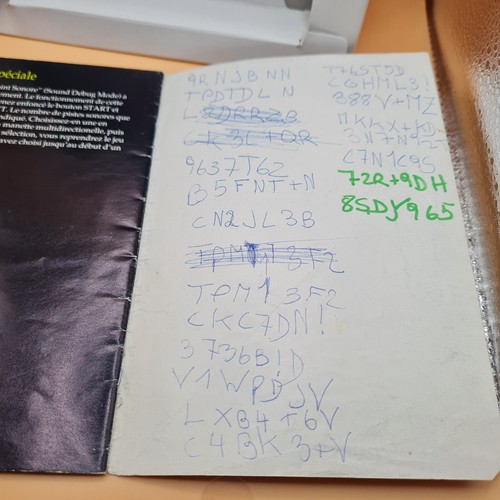 péciale
int Sonore" (Sound Debug Mode) a
ement. Le fonctionnement de cette
enez enfoncé le bouton START et
T. Le nombre de pistes sonores que
ndiqué. Choisissez-en une en
manette multidirectionelle, puis
sélection, vous reprendrez le jeu
avez choisi jusqu'au début d'un
9RNJBNN
TPDTDLN
9637T6Z
B5FNT+N
CN2JL3B
TPM1 3F2
CKC7DN!
3736B!D
V1WPDJV
LXB4+6V
C4BK3+V
T765TDD
C6HML3!
388V+MZ
C7N1C9S
72R+9DH